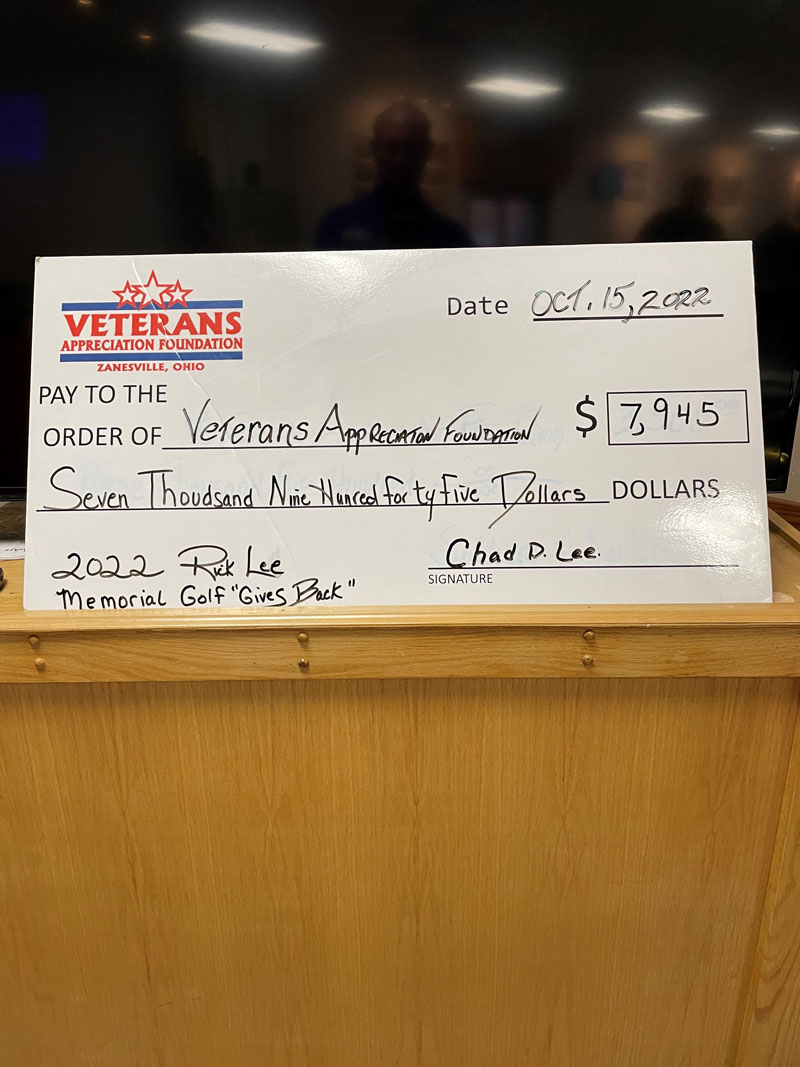 VETERANS
APPRECIATION FOUNDATION
ZANESVILLE, OHIO
Date OCT. 15, 2022
PAY TO THE
ORDER OF Veterans Appreciaton Foundation $ 7,945
Seven Thoudsand Nine Hunred forty five Dollars DOLLARS
2022 Rick Lee
Memorial Golf "Gives Back"
Chad D. Lee.
SIGNATURE